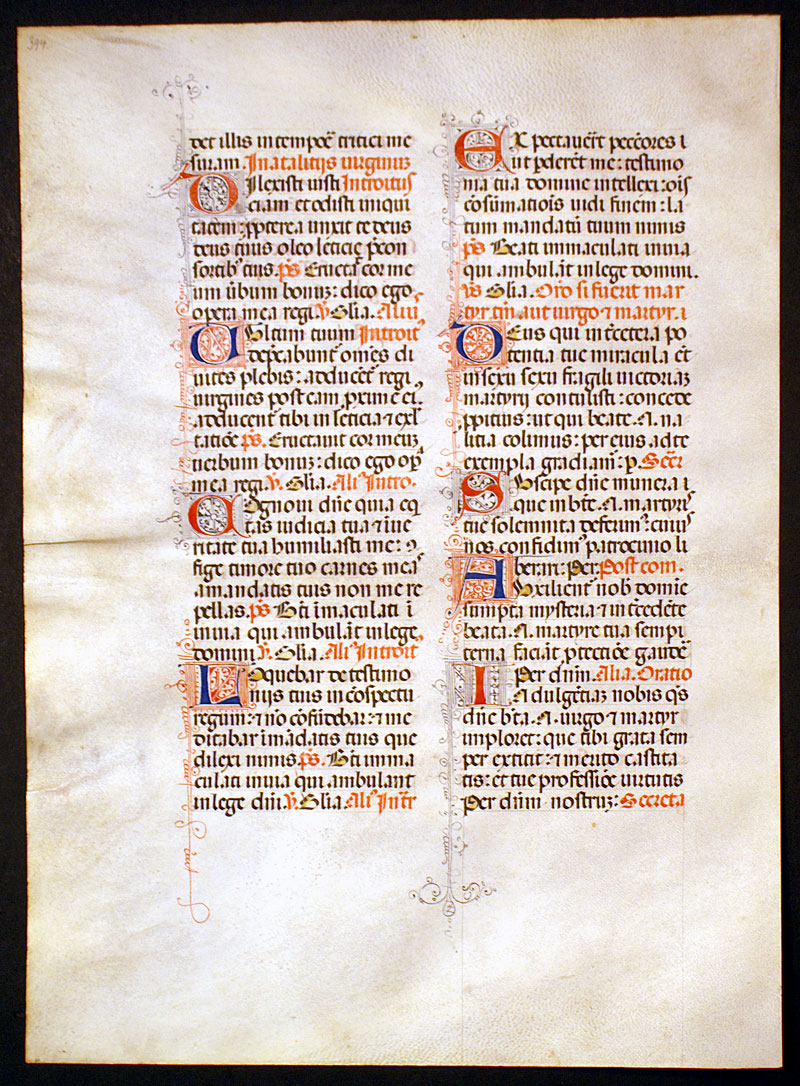 394
det illis in tempor̄ tritici me
suram. In atalitijs uirginuz
Dilexisti iusti Introitus
ciam et odisti iniqui
tatem: ꝓpterea unxit te deus
deus tuus oleo leticie p̄con
sortib' tuis. p̄s Eructa! cor me
um ūbum bonuz: dico ego
opera mea regi. ꝟ. Glia. Aliu!
Vultum tuum Introit'
dep̄cabunt̄ om̄es di
uites plebis: adducent̄ regi
uirgines post eam, proxime ei.
adducent̄ tibi in leticia et exl'
tatiōe p̄s. Eructauit cor meuz
uerbum bonuz: dico ego op̄a
mea regi. ꝟ. Glia. Ali! Intro.
Cognoui dn̄e quia eq
tas iudicia tua ⁊ ī ue
ritate tua humiliasti me: ꝯ
fige timore tuo carnes meas
a mandatis tuis non me re
pellas. p̄s Bt̄i īmaculati ī
in uia qui ambulāt in lege
domini ꝟ. Glia. Ali! Introit'
Loquebar de testimo
nijs tuis in cōspectu
regum: ⁊ nō cōfūdebar: ⁊ me
ditabar ī mādatis tuis que
dilexi nimis. p̄s. Bt̄i imma
culati in uia qui ambulant
in lege dn̄i. ꝟ. Glia. Ali! Intr̄
Expectauer̄t pecc̄ores i
ut ꝑderēt me: testimo
nia tua domine intellexi: oīs
cōsūmatiōis uidi finem: la
tum mandatū tuum nimis
p̄s Beati immaculati in uia
qui ambulāt in lege domini.
ꝟs Glia. Oro si fuerit mar
tyr tm̄ aut uirgo ⁊ martyr. i
Deus qui int̄cetera po
tentia tue miracula ēt
in sexu sexu fragili uictoriaz
martyrij contulisti: concede
ꝓpitius: ut qui beate .N. na
litia colimus: per eius ad te
exempla gradiam̄: p. Secr̄
Suscipe dn̄e munera i
que in bt̄e .N. martyris
tue solemnita deferim': cuius
nos confidim' patrocinio li
berari: Per. Post com.
Auxilient̄ nob' domīe
sumpta mysteria ⁊ int̄cedēte
beata .N. martyre tua sempi
terna faciāt ꝓtectiōe gaudē
Per dn̄m. Alia. Oratio
Indulgentiaz nobis q̄s
dn̄e bt̄a .N. uirgo ⁊ martyr
imploret: que tibi grata sem
per extitit: ⁊ merito castita
tis: et tue professiōe uirtutis
Per dn̄m nostruz: Secreta